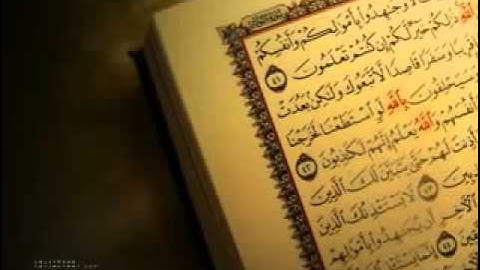 وَجَٰهِدُوا۟ بِأَمْوَٰلِكُمْ وَأَنفُسِكُمْ
ٱللَّهِ ذَٰلِكُمْ خَيْرٌ لَّكُمْ إِن كُنتُمْ تَعْلَمُونَ ٤١
قَرِيبًا وَسَفَرًا قَاصِدًا لَّٱتَّبَعُوكَ وَلَٰكِنۢ بَعُدَتْ
وَسَيَحْلِفُونَ بِٱللَّهِ لَوِ ٱسْتَطَعْنَا لَخَرَجْنَا
أَنفُسَهُمْ وَٱللَّهُ يَعْلَمُ إِنَّهُمْ لَكَٰذِبُونَ ٤٢
أَذِنتَ لَهُمْ حَتَّىٰ يَتَبَيَّنَ لَكَ ٱلَّذِينَ
٤٣ لَا يَسْتَـْٔذِنُكَ ٱلَّذِينَ
ٱلْـَٔاخِرِ أَن يُجَٰهِدُوا۟ بِأَمْوَٰلِهِمْ
٤٤ إِنَّمَا